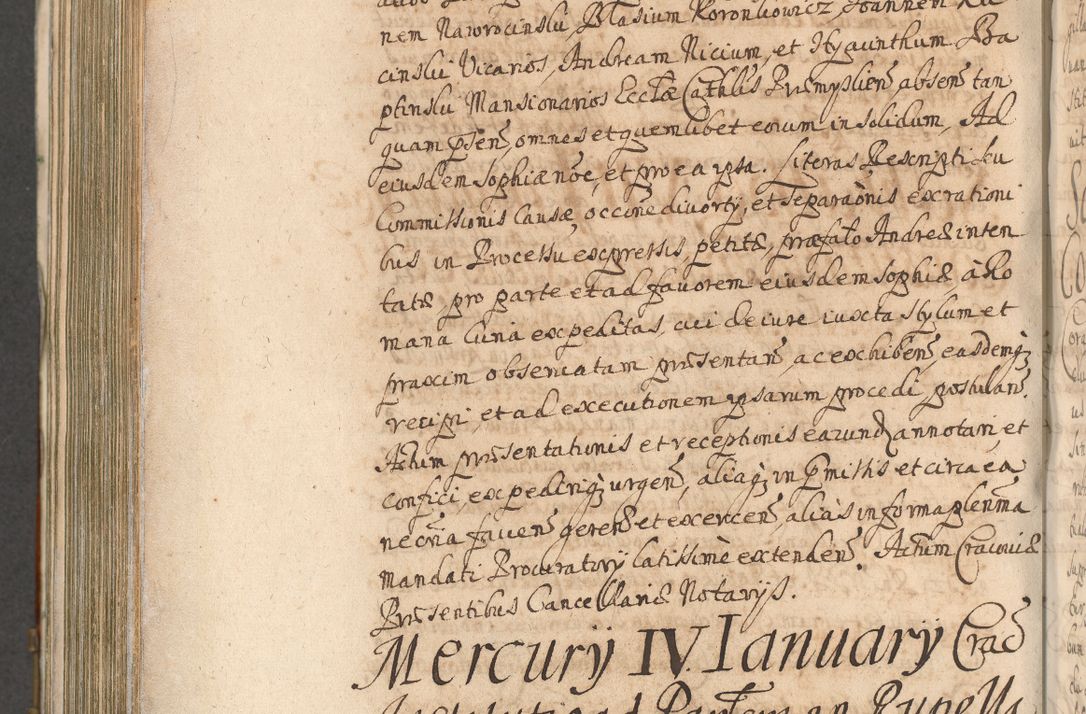 nem Nawrocinski, Blasium Koronkowicz, Joannem
cinski Vicarios, Andream Nicium, et Hyacinthum Ba
ptinski Mansionarios Ecctæ Cathlis Præmyslien absen tan
quam psen, omnes et quemlibet eorum in solidum, Ad
eiusdem Sophiæ nõe, et pro ea ipsa. Literas Rescripti seu
Commissionis Causæ, occõne divortÿ, et separaõnis ex rationi
bus in Processu expressis, petitæ, præfato Andreæ inten
tatæ pro parte et ad favorem eiusdem Sophiæ à Ro
mana Curia expeditas, cui de iure iuxta stylum et
praxim observatam præsentan, ac exhiben, easdemq
recipi, et ad executionem ipsarum procedi postulan.
Actum præsentationis et receptionis earund annotari, et
confici, expediriq urgen, aliaq in pmissis et circa ea
necria facien geren et exercen, alias in forma plenma
mandati ProcuratorÿLatissime extenden. Actum Cracoviæ
Præsentibus Cancellariæ Notarÿs.
Mercurÿ IV Ianuarÿ Crac